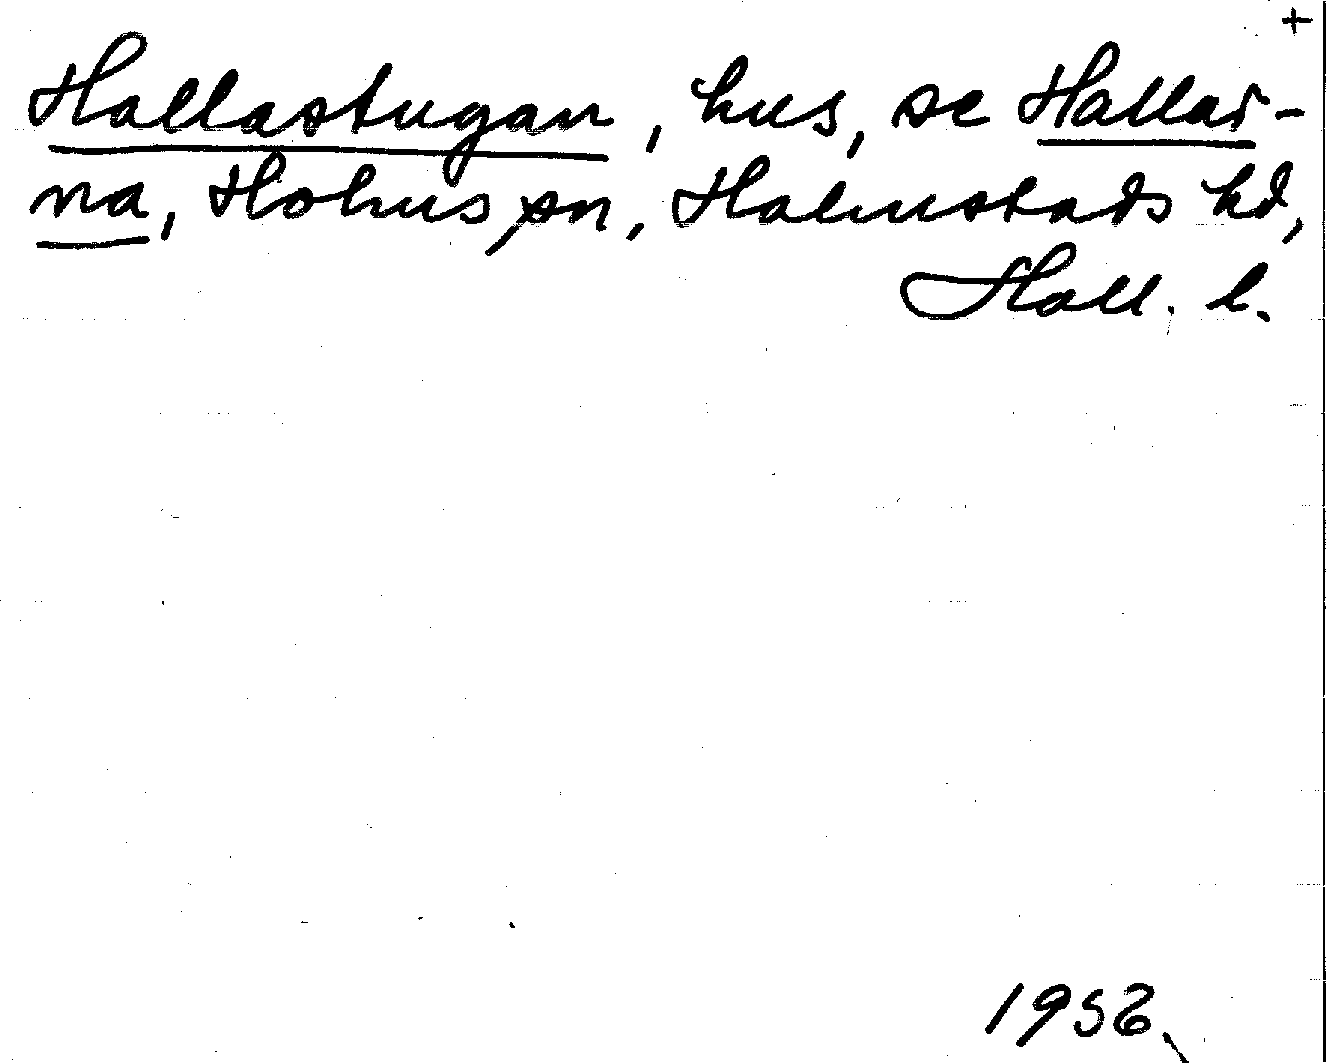 +
Hallastugan, hus, se Hallar-
na, Holms sn, Halmstads hd,
Hall. l.
1952